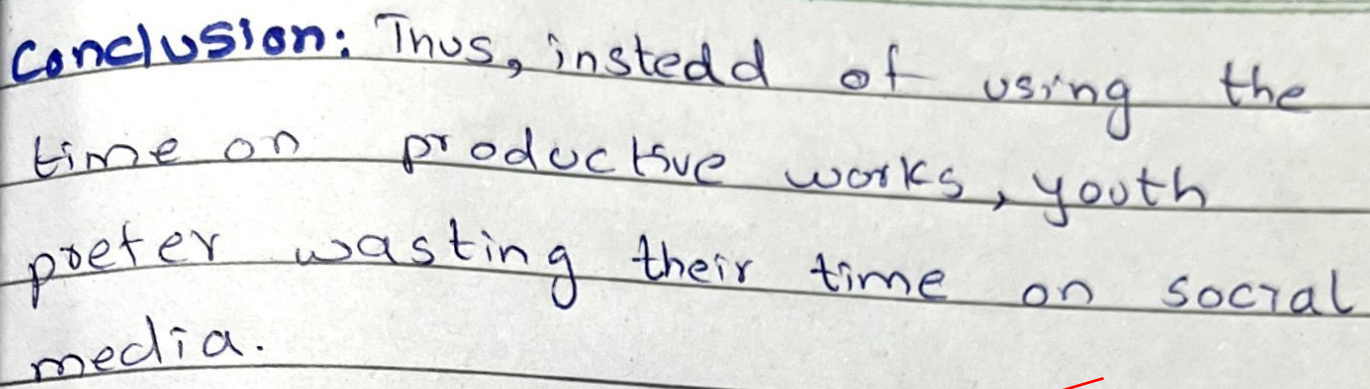 Conclusion: Thus, instedd of using the
time on productive works, youth
prefer wasting their time on social
media.